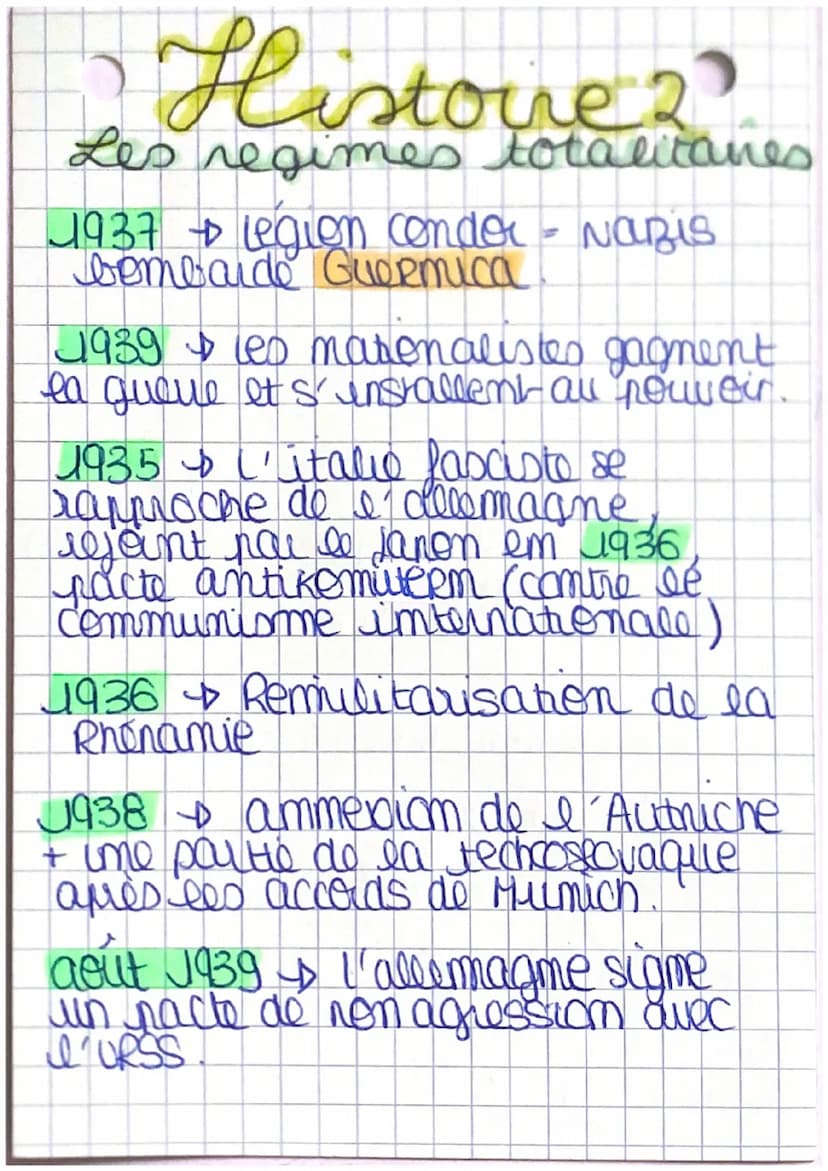 Histoire 2
Les regimes totalitaires
1937 → Légion condor = NAZIS
bombarde Guernica.
1939 → les nationalistes gagnent
la guerre et s'installent au pouvoir.
1935 → L'italie fasciste se
rapproche de l'allemagne,
rejoint par le Japon en 1936,
pacte antikomintern (contre le
communisme internationale)
1936 → Remilitarisation de la
Rhénanie
1938 → annexion de l'Autriche
+ une partie de la techcoslovaque
après les accords de Munich.
août 1939 → l'allemagne signe
un pacte de non agression avec
l'URSS.